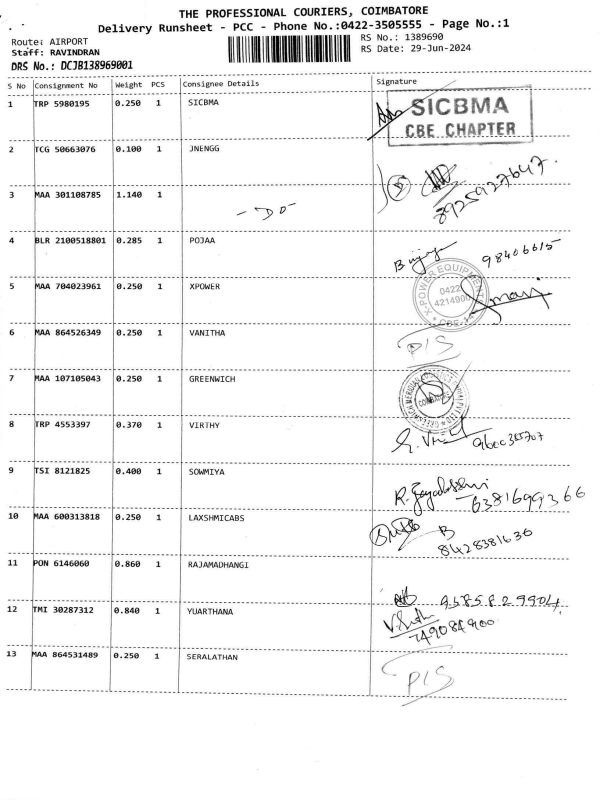 THE PROFESSIONAL COURIERS, COIMBATORE
Delivery Runsheet - PCC - Phone No.:0422-3505555 - Page No.:1
Route: AIRPORT
RS No.: 1389690
Staff: RAVINDRAN
RS Date: 29-Jun-2024
DRS No.: DCJB138969001
S No Consignment No Weight PCS Consignee Details Signature
1 TRP 5980195 0.250 1 SICBMA
SICBMA
CBE CHAPTER
2 TCG 50663076 0.100 1 JNENGG
8925927647
3 MAA 301108785 1.140 1 - DO -
4 BLR 2100518801 0.285 1 POJAA
98406615
5 MAA 704023961 0.250 1 XPOWER
X-POWER EQUIPMENT
0422
4214900
CBE-14
6 MAA 864526349 0.250 1 VANITHA P/S
7 MAA 107105043 0.250 1 GREENWICH
GREENWICH MERIDIAN
8 TRP 4553397 0.370 1 VIRTHY
9 TSI 8121825 0.400 1 SOWMIYA
6381699366
10 MAA 600313818 0.250 1 LAXSHMICABS
B
8428381636
11 PON 6146060 0.860 1 RAJAMADHANGI
9585829904
12 TMI 30287312 0.840 1 YUARTHANA
13 MAA 864531489 0.250 1 SERALATHAN P/S